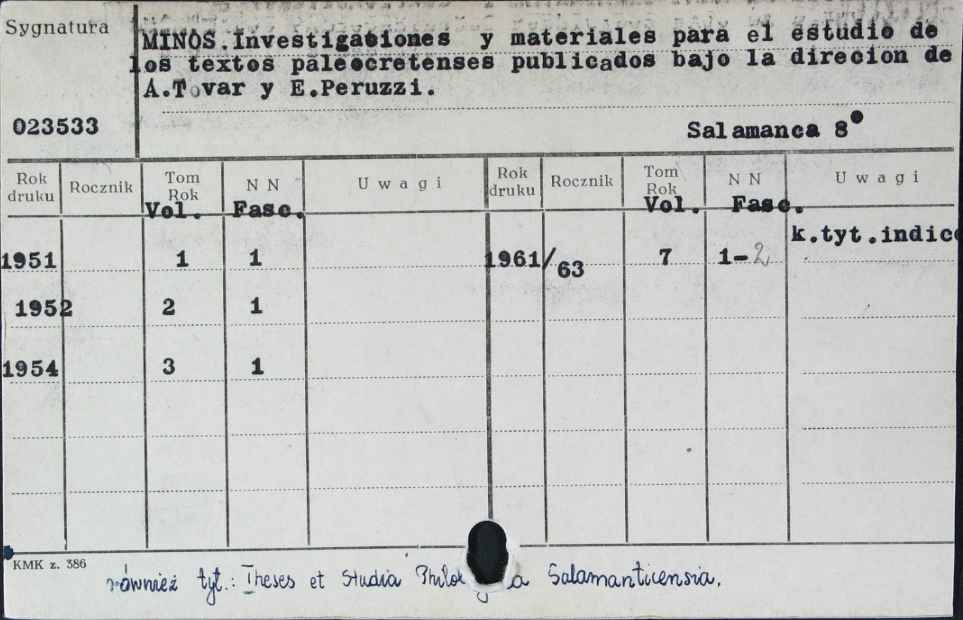 Sygnatura
MINOS.Investigaciones y materiales para el estudio de
los textos paleocretenses publicados bajo la direcion de
A.Tovar y E.Peruzzi.
023533
Salamanca 8°
Rok druku Rocznik Tom Rok N N Uwagi Rok druku Rocznik Tom Rok N N Uwagi
Vol. Fasc. Vol. Fasc.
k.tyt.indice
1951 1 1 1961/63 7 1-2
1952 2 1
1954 3 1
KMK z. 386
również tyt.: Theses et Studia Salamanticensia.